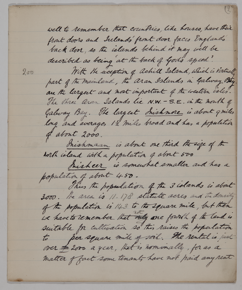 well to remember that countries, like houses have their
front doors and Ireland's front door faces England's
back door, so the islands behind it may well be
described as being at the back of God's speed.
200
With the exception of Achill Island which is
part of the mainland, the Aran Islands in Galway Bay
are the largest and most important of the western isles.
The three Aran Islands lie N.W. - S.E. in the mouth of
Galway Bay. The largest Inishmore is about 9 miles
long and averages 1½ miles broad and has a population
of about 2000.
Inishmaan is about one third the size of the
north island with a population of about 500
Inisheer is somewhat smaller and has a
population of about 450.
Thus the population of the 3 islands is about
3000. The area is 11,
of the population is to the square mile, but then
we have to remember that only one of the land is
suitable for cultivation so this raises the population
to per square mile of soil. The rental is
over £ 2000 a year, that is nominally, for as a
matter of fact some tenants have not paid any rent